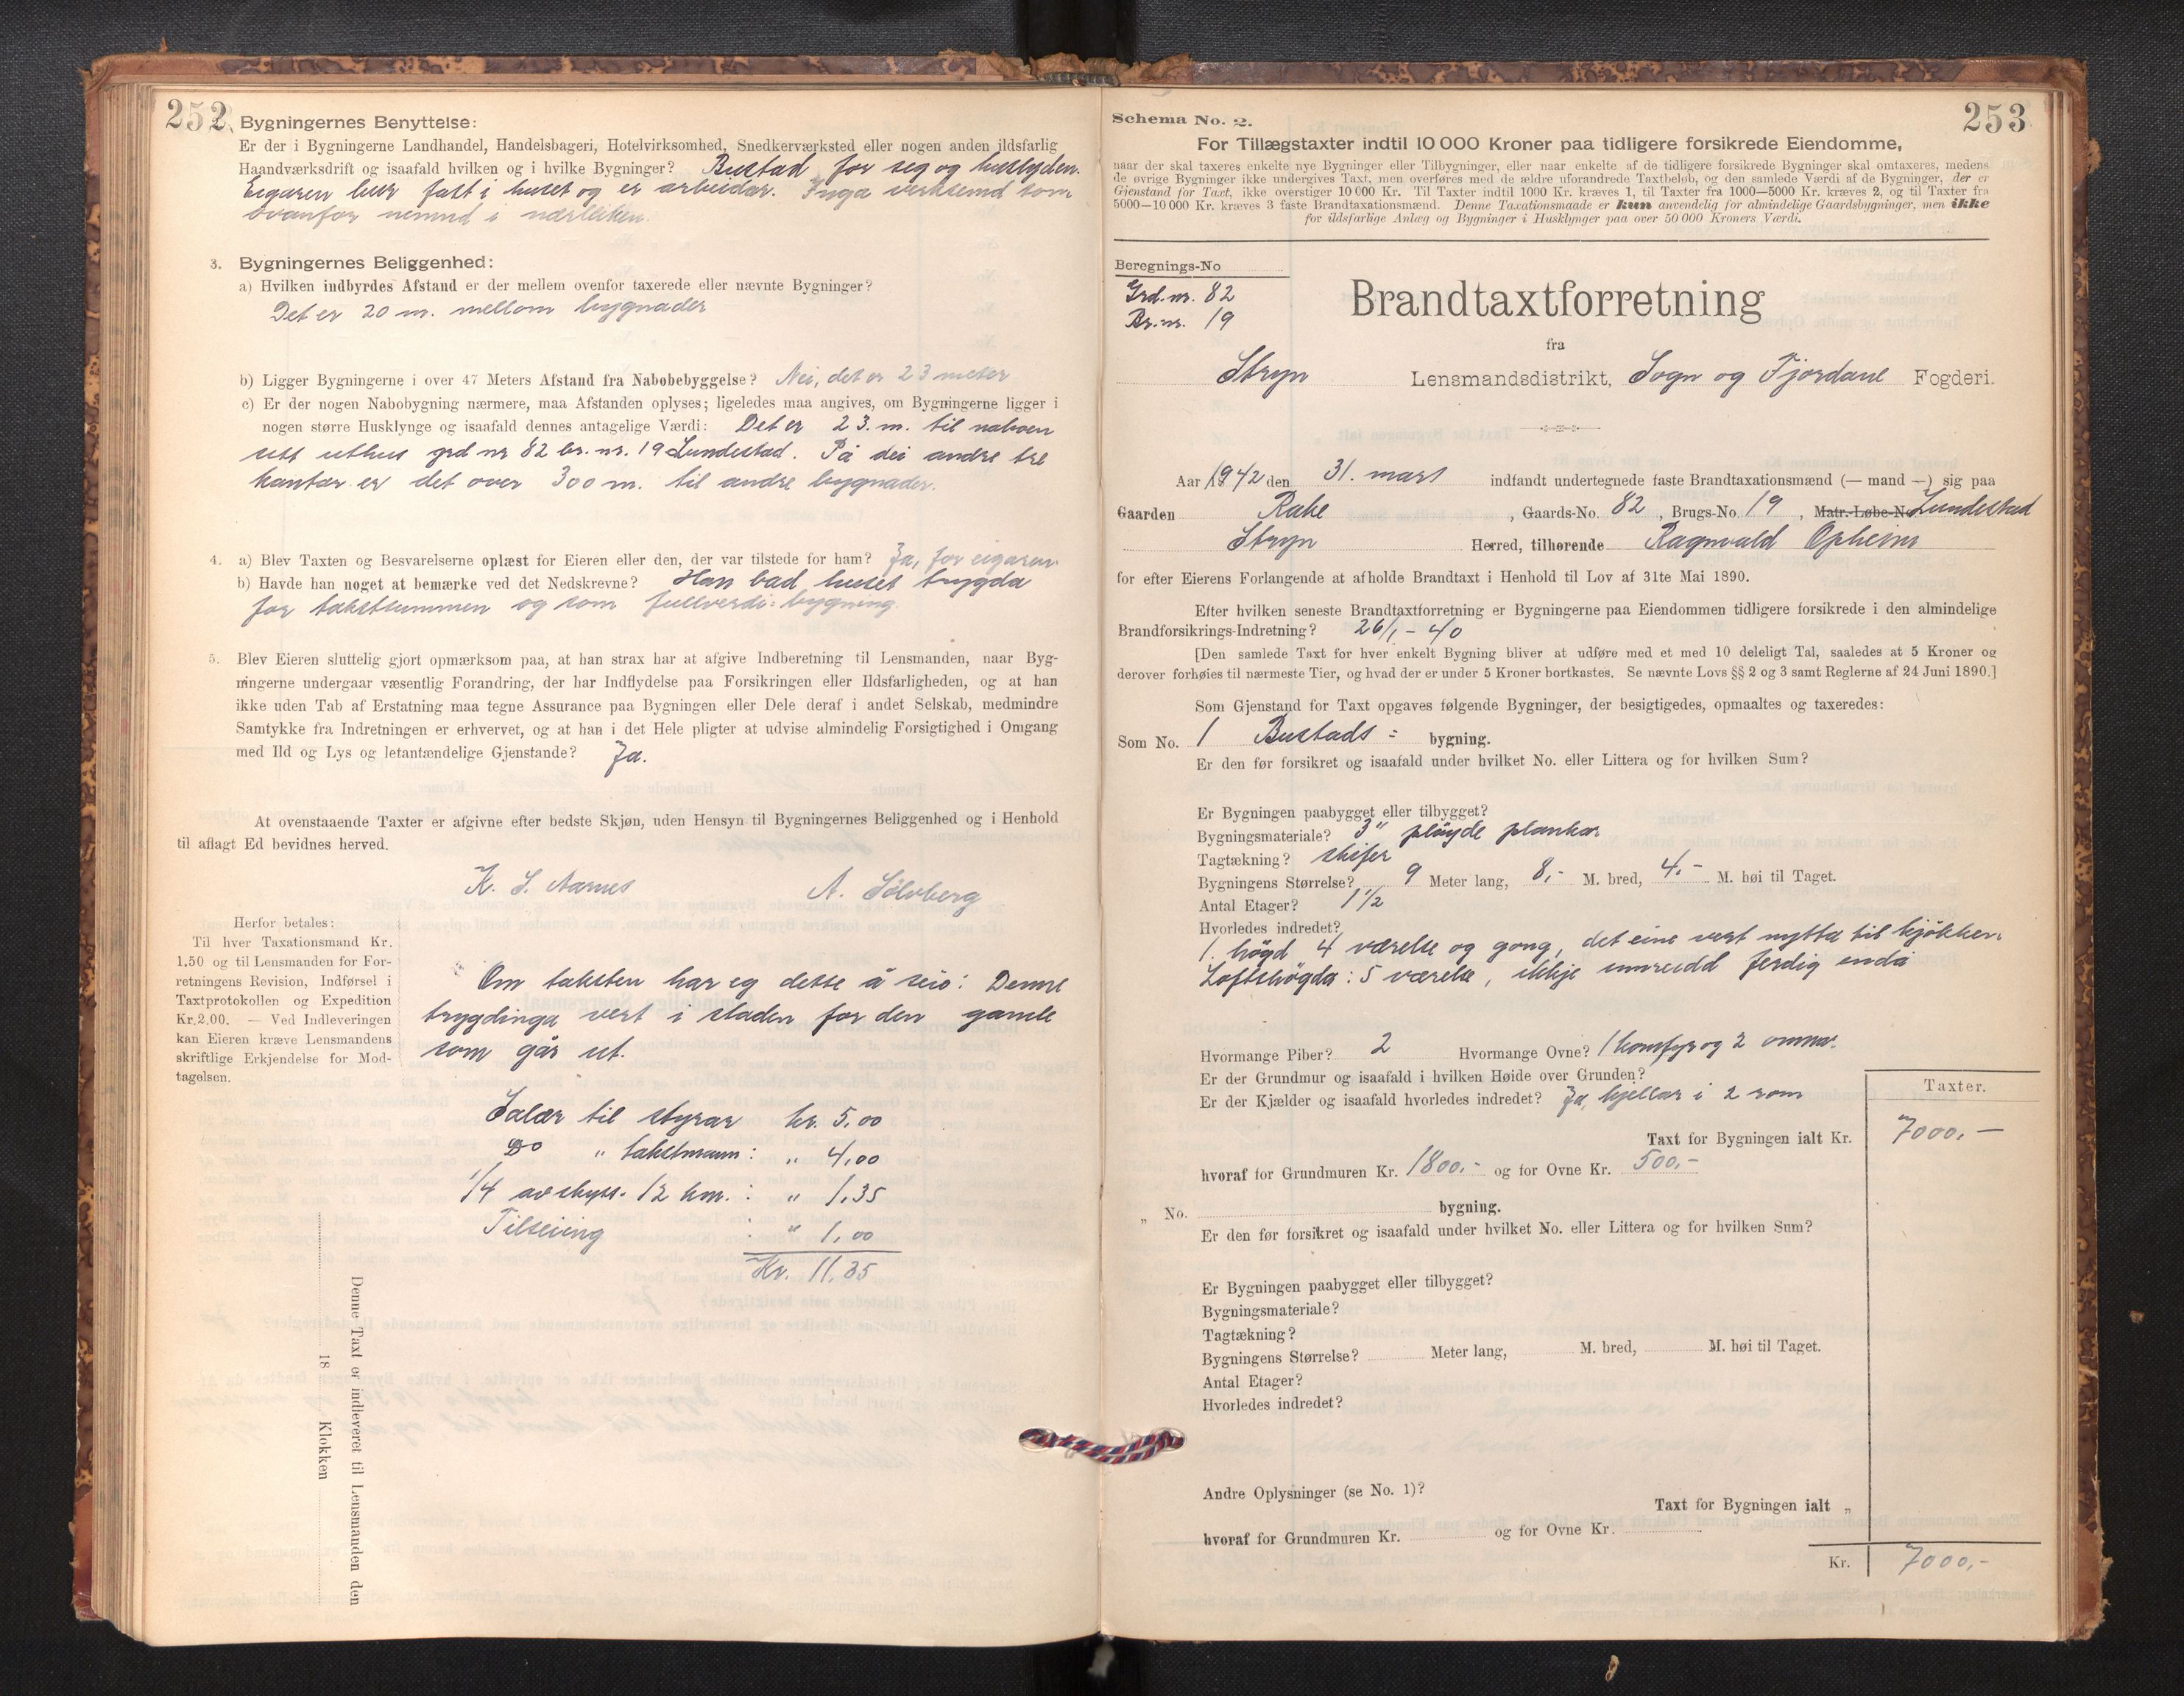 252
2. Bygningernes Benyttelse:
Er der i Bygningerne Landhandel, Handelsbageri, Hotelvirksomhed, Snedkerværksted eller nogen anden ildsfarlig
Haandværksdrift og isaafald hvilken og i hvilke Bygninger? Bustad for seg og huslyden.
Eigaren bur fast i huset og er arbeidar. Inga verksemd som
ovanfor nemnd i nærleiken.
3. Bygningernes Beliggenhed:
a) Hvilken indbyrdes Afstand er der mellem ovenfor taxerede eller nævnte Bygninger?
Det er 20 m. mellom bygnader
b) Ligger Bygningerne i over 47 Meters Afstand fra Nabobebyggelse? Nei, det er 23 meter
c) Er der nogen Nabobygning nærmere, maa Afstanden oplyses; ligeledes maa angives, om Bygningerne ligger i
nogen større Husklynge og isaafald dennes antagelige Værdi: Det er 23. m. til naboen
sitt uthus grd nr 82 br. nr. 19 Lundestad. På dei andre tre
kantar er det over 300 m. til andre bygnader.
4. a) Blev Taxten og Besvarelserne oplæst for Eieren eller den, der var tilstede for ham? Ja, for eigaren
b) Havde han noget at bemærke ved det Nedskrevne? Han bad huset trygda
for takstsummen og som fullverdi: bygning.
5. Blev Eieren sluttelig gjort opmærksom paa, at han strax har at afgive Indberetning til Lensmanden, naar Byg-
ningerne undergaar væsentlig Forandring, der har Indflydelse paa Forsikringen eller Ildsfarligheden, og at han
ikke uden Tab af Erstatning maa tegne Assurance paa Bygningen eller Dele deraf i andet Selskab, medmindre
Samtykke fra Indretningen er erhvervet, og at han i det Hele pligter at udvise almindelig Forsigtighed i Omgang
med Ild og Lys og letantændelige Gjenstande? Ja.
At ovenstaaende Taxter er afgivne efter bedste Skjøn, uden Hensyn til Bygningernes Beliggenhed og i Henhold
til aflagt Ed bevidnes herved.
K. S. Aarnes A. Sölvberg
Herfor betales:
Til hver Taxationsmand Kr.
1.50 og til Lensmanden for For-
retningens Revision, Indførsel i
Taxtprotokollen og Expedition
Kr. 2.00. — Ved Indleveringen
kan Eieren kræve Lensmandens
skriftlige Erkjendelse for Mod-
tagelsen.
Om taksten har eg dette å seia: Denne
trygdinga vert i staden for den gamle
som går ut.
Salær til styrar kr. 5,00
Do " takstmann: " 4,00
1/4 av skyss. 12 km. : " 1,35
Tilseiing : " 1,00
Kr. 11,35
Denne Taxt er indleveret til Lensmanden den
18 Klokken
253
Schema No. 2.
For Tillægstaxter indtil 10 000 Kroner paa tidligere forsikrede Eiendomme,
naar der skal taxeres enkelte nye Bygninger eller Tilbygninger, eller naar enkelte af de tidligere forsikrede Bygninger skal omtaxeres, medens
de øvrige Bygninger ikke undergives Taxt, men overføres med de ældre uforandrede Taxtbeløb, og den samlede Værdi af de Bygninger, der er
Gjenstand for Taxt, ikke overstiger 10 000 Kr. Til Taxter indtil 1000 Kr. kræves 1, til Taxter fra 1000—5000 Kr. kræves 2, og til Taxter fra
5000—10 000 Kr. kræves 3 faste Brandtaxationsmænd. Denne Taxationsmaade er kun anvendelig for almindelige Gaardsbygninger, men ikke
for ildsfarlige Anlæg og Bygninger i Husklynger paa over 50 000 Kroners Værdi.
Beregnings-No
Grd. nr. 82
Br. nr. 19
Brandtaxtforretning
fra
Stryn Lensmandsdistrikt, Sogn og Fjordane Fogderi.
Aar 1942 den 31. mars indfandt undertegnede faste Brandtaxationsmænd (— mand —) sig paa
Gaarden Rake, Gaards-No. 82, Brugs-No. 19, Matr.-Løbe-No Lundestad
Stryn Herred, tilhørende Ragnvald Opheim
for efter Eierens Forlangende at afholde Brandtaxt i Henhold til Lov af 31te Mai 1890.
Efter hvilken seneste Brandtaxtforretning er Bygningerne paa Eiendommen tidligere forsikrede i den almindelige
Brandforsikrings-Indretning? 26/1 - 40
[Den samlede Taxt for hver enkelt Bygning bliver at udføre med et med 10 deleligt Tal, saaledes at 5 Kroner og
derover forhøies til nærmeste Tier, og hvad der er under 5 Kroner bortkastes. Se nævnte Lovs §§ 2 og 3 samt Reglerne af 24 Juni 1890.]
Som Gjenstand for Taxt opgaves følgende Bygninger, der besigtigedes, opmaaltes og taxeredes:
Som No. 1 Bustads = bygning.
Er den før forsikret og isaafald under hvilket No. eller Littera og for hvilken Sum?
Er Bygningen paabygget eller tilbygget?
Bygningsmateriale? 3" pløyde plankar
Tagtækning? skifer
Bygningens Størrelse? 9 Meter lang, 8,- M. bred, 4,- M. høi til Taget.
Antal Etager? 1 1/2
Hvorledes indredet?
1. högd 4 værelse og gong, det eine vert nytta til kjökken.
Loftshögda: 5 værelse, ikkje innreidd ferdig endå
Hvormange Piber? 2 Hvormange Ovne? 1 komfyr og 2 omnar.
Er der Grundmur og isaafald i hvilken Høide over Grunden?
Er der Kjælder og isaafald hvorledes indredet? Ja, kjellar i 2 rom
Taxter.
Taxt for Bygningen ialt Kr. 7000,—
hvoraf for Grundmuren Kr. 1800.- og for Ovne Kr. 500,-
„ No. bygning.
Er den før forsikret og isaafald under hvilket No. eller Littera og for hvilken Sum?
Er Bygningen paabygget eller tilbygget?
Bygningsmateriale?
Tagtækning?
Bygningens Størrelse? Meter lang, M. bred, M. høi til Taget.
Antal Etager?
Hvorledes indredet?
Andre Oplysninger (se No. 1)?
Taxt for Bygningen ialt „
hvoraf for Grundmuren Kr. og for Ovne Kr.
Kr. 7000,-